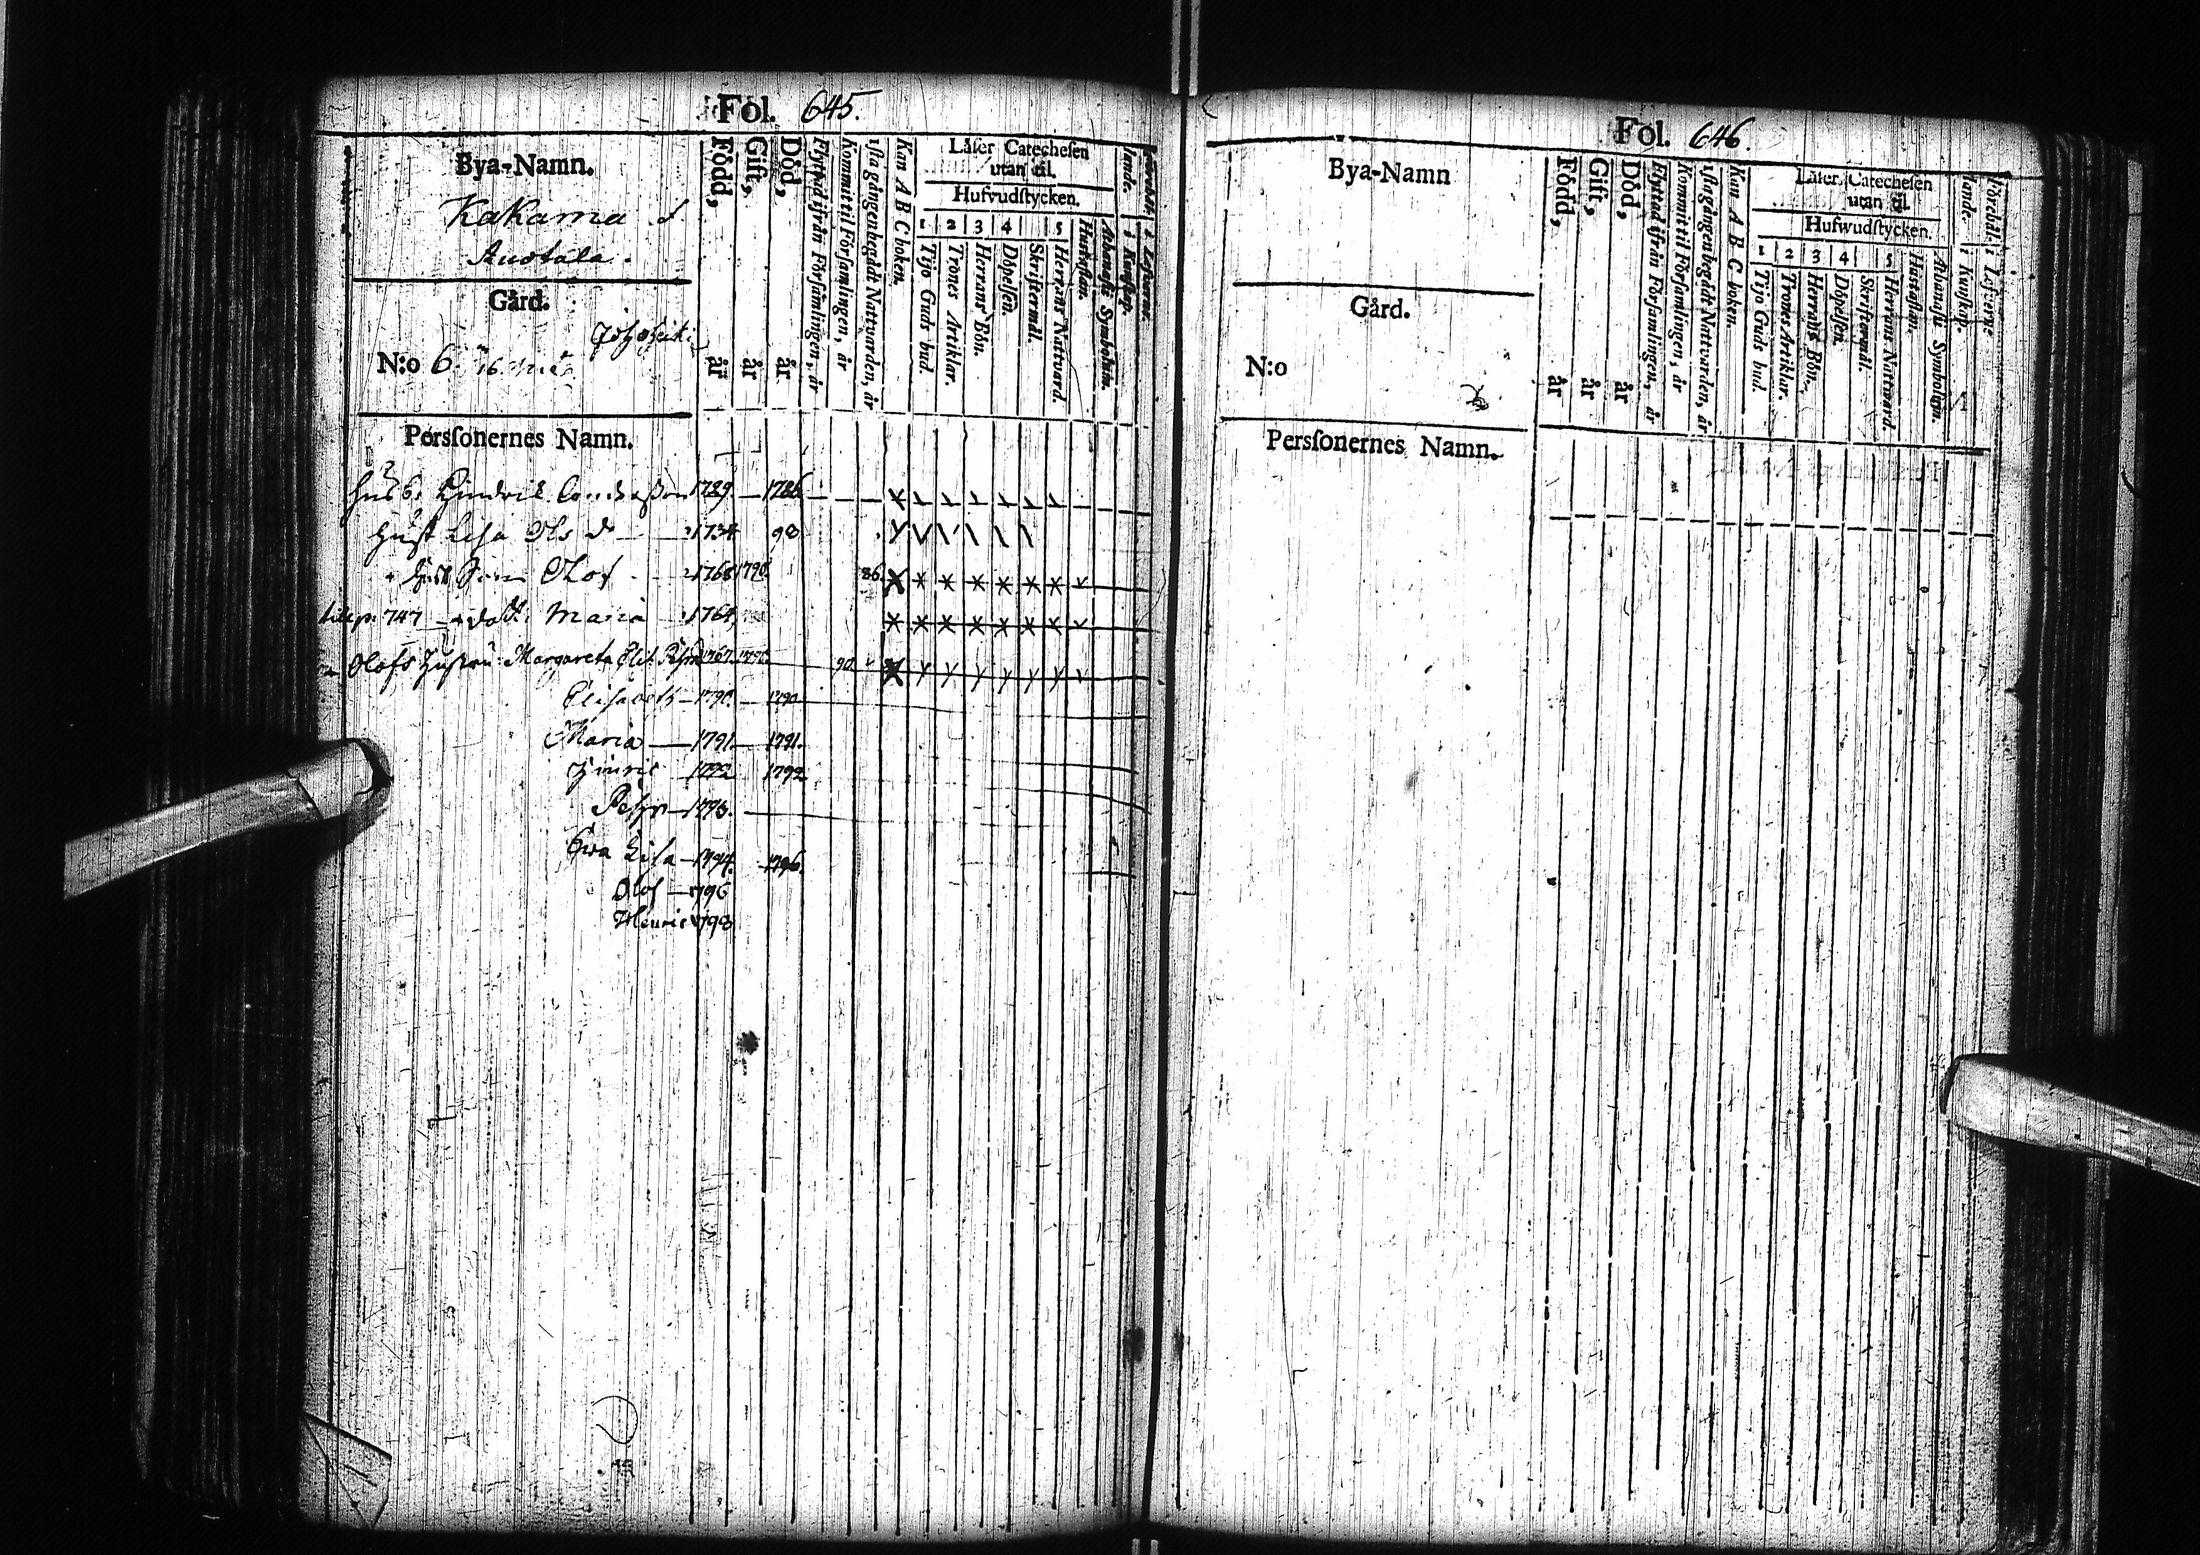 Fol. 645.
Bya-Namn.
Kakama
Anotala.
Gård.
N:o 6.
Perſonernes Namn.
Född, år
Gift, år
Död, år
Flyttad ifrån Förſamlingen, år
Kommit til Förſamlingen, år
1ſta gången begådt Nattvarden, år
Kan A B C boken.
Läſer Catecheſen
utan til.
Hufvudſtycken.
1 2 3 4 5
Tijo Guds bud.
Trones Artiklar.
Herrans Bön.
Döpelſen.
Skriftermål.
Herrans Nattvard.
Huſtaflan.
Athanaſii Symbolum.
i Kunſkap.
i Lefverne.
Husb. Hindric 1729. 1786
Hust Lisa Ols d 1734 98
Son Olof 1768 1790 86
747 dott. Maria 1764
Olofs Hustru Margareta 1767 1790 90
Elisabeth 1790. 1790
Maria 1791 1791.
Hinric 1792 1792
1793.
Ewa Lisa 1794. 1796.
Olof 1796
Henric 1798
Fol. 646
Bya-Namn
Gård.
N:o
Perſonernes Namn.
Född, år
Gift, år
Död, år
Flyttad ifrån Förſamlingen, år
Kommit til Förſamlingen, år
1ſta gången begådt Nattvarden, år
Kan A B C boken.
Läſer Catecheſen
utan til
Hufwudſtycken.
1 2 3 4 5
Tijo Guds bud.
Trones Artiklar.
Herrans Bön.
Döpelſen.
Skriftermål.
Herrans Nattvard.
Huſtaflan.
Athanaſii Symbolum.
i Kunſkap.
i Lefverne